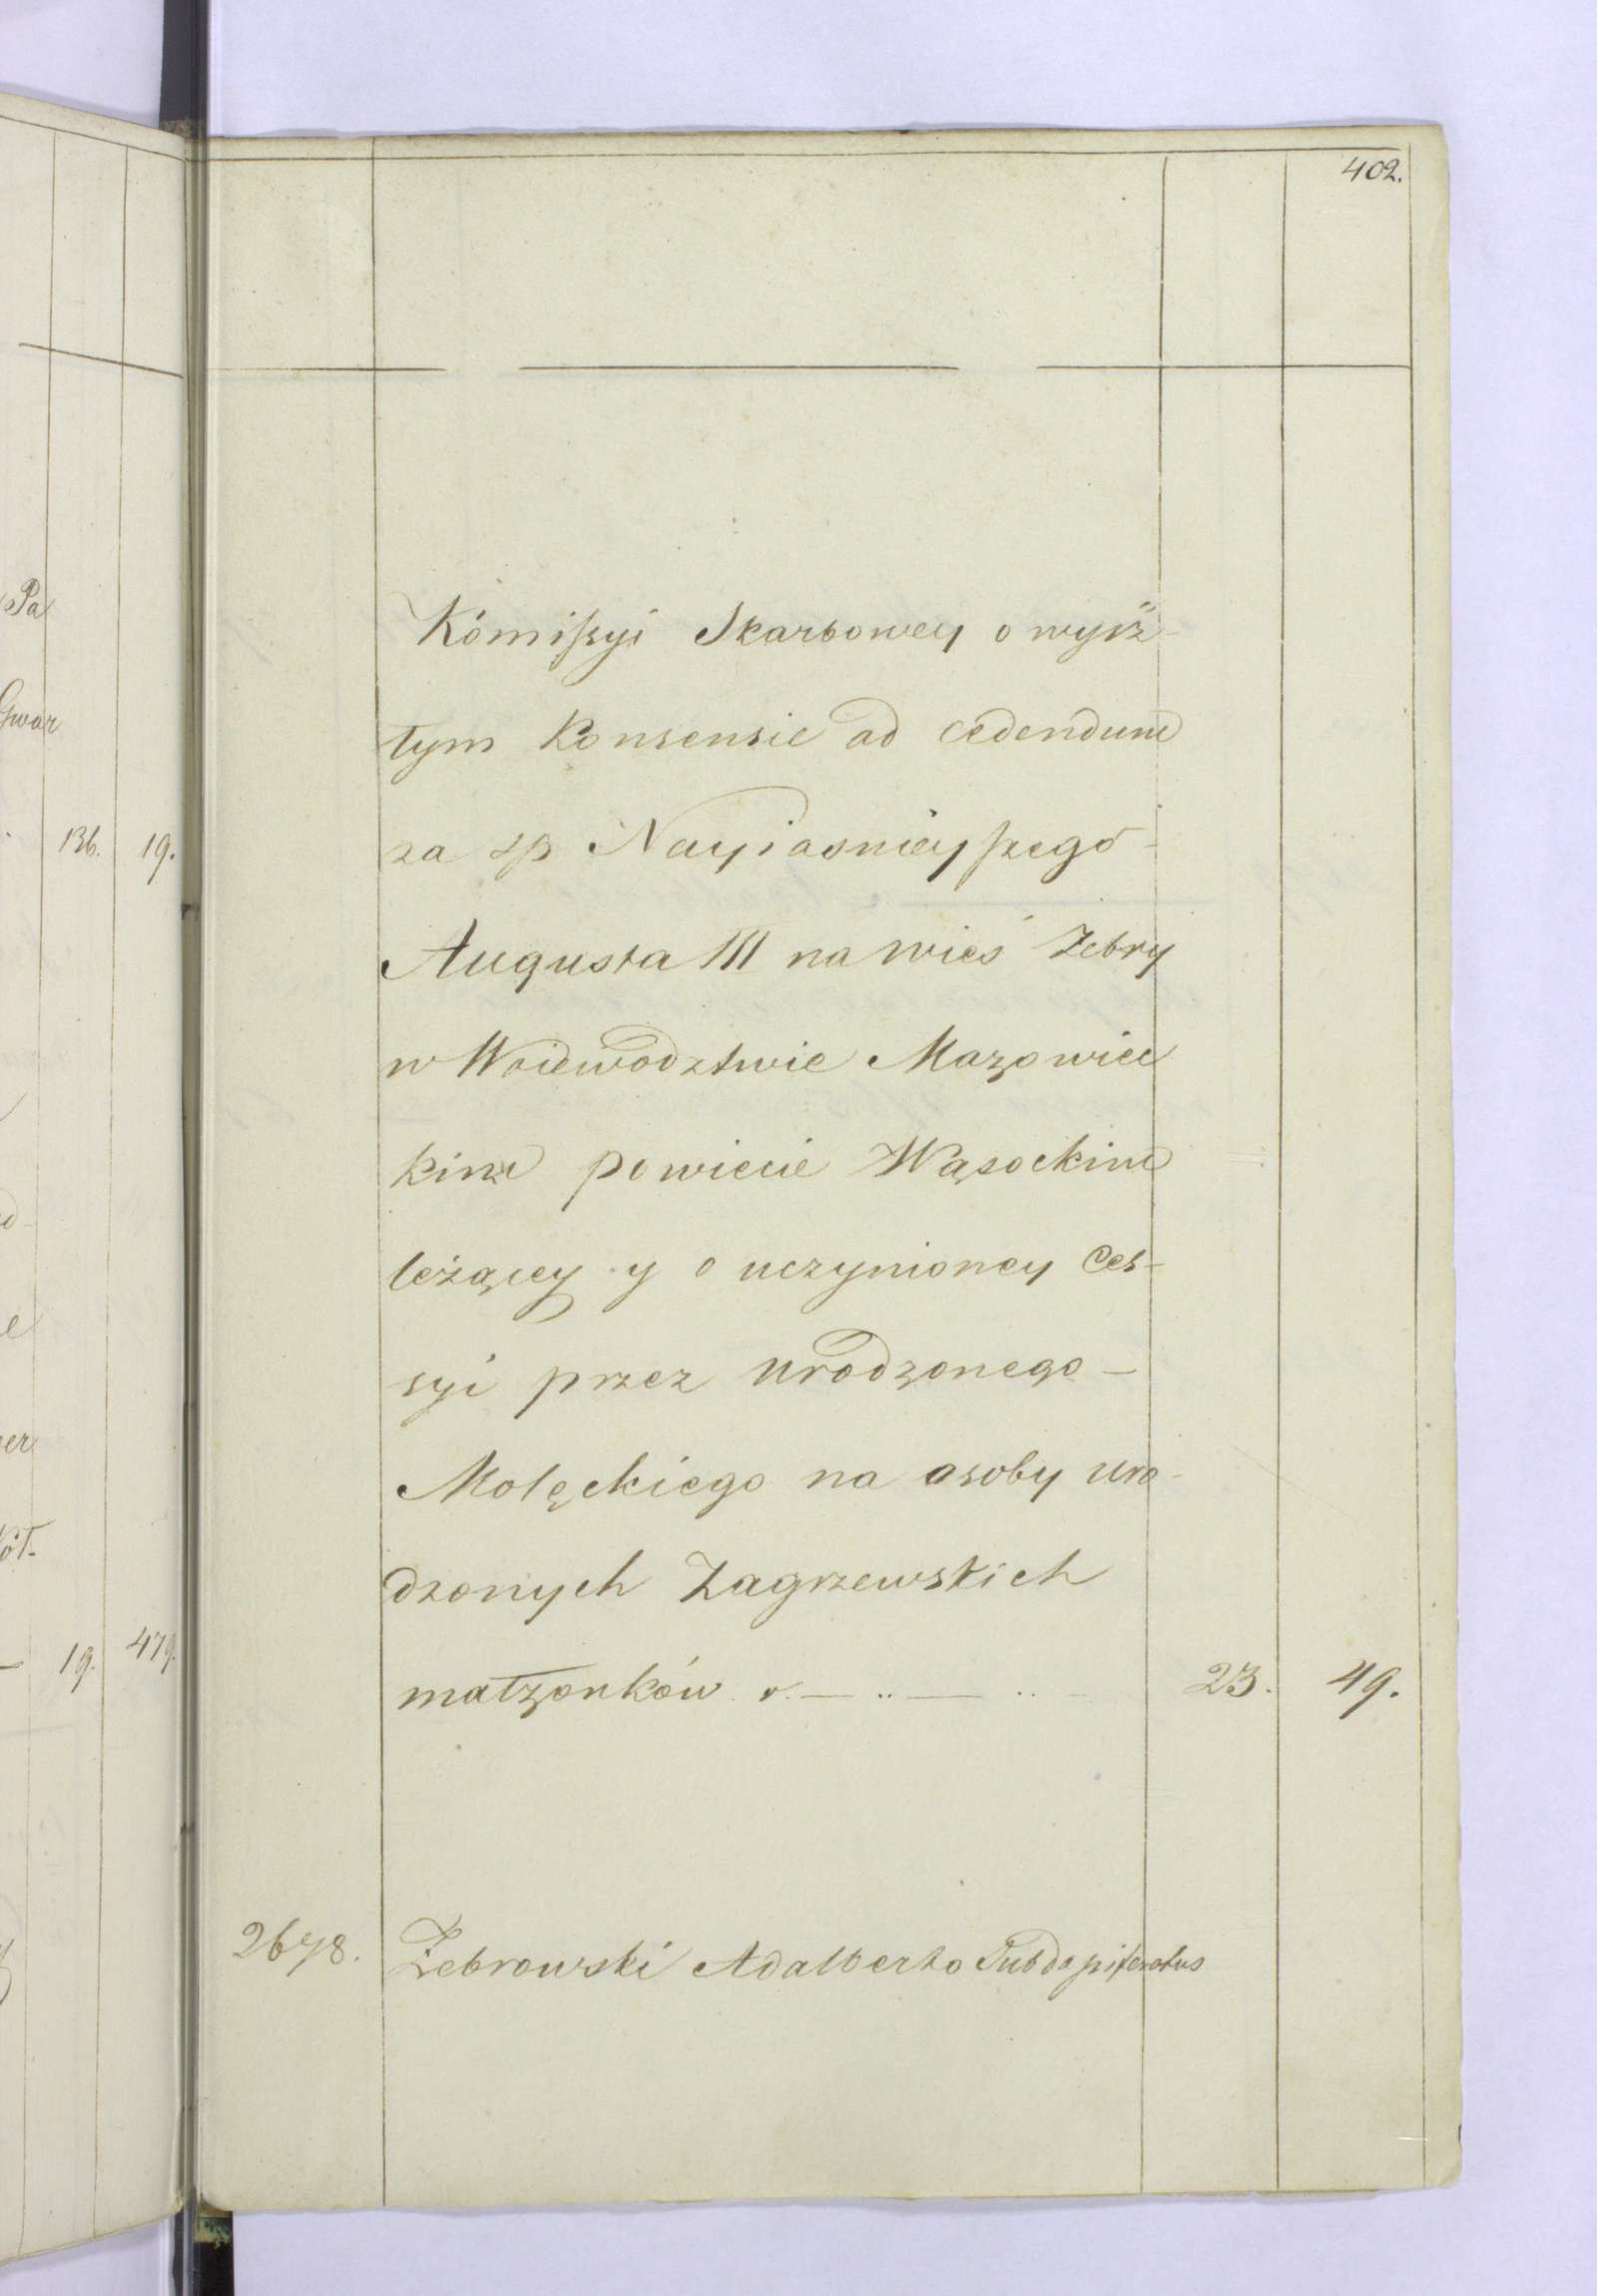 402.
Kómissyi Skarbowey o wyiż-
tym Konsensie ad cedendum
za sp Nayiasnieyszego -
Augusta III na wieś Żebry
w Woiewodztwie Mazowiec
kim powiecie Wąsockim
leżącey y o uczynioney Ces-
syi przez urodzonego -
Molęckiego na osoby uro-
dzonych Zagrzewskich
małzonków 23. 49.
2678. Żebrowski Adalberto Subdapiferatus
Pa
Gwar
136. 19.
er
19. 479.